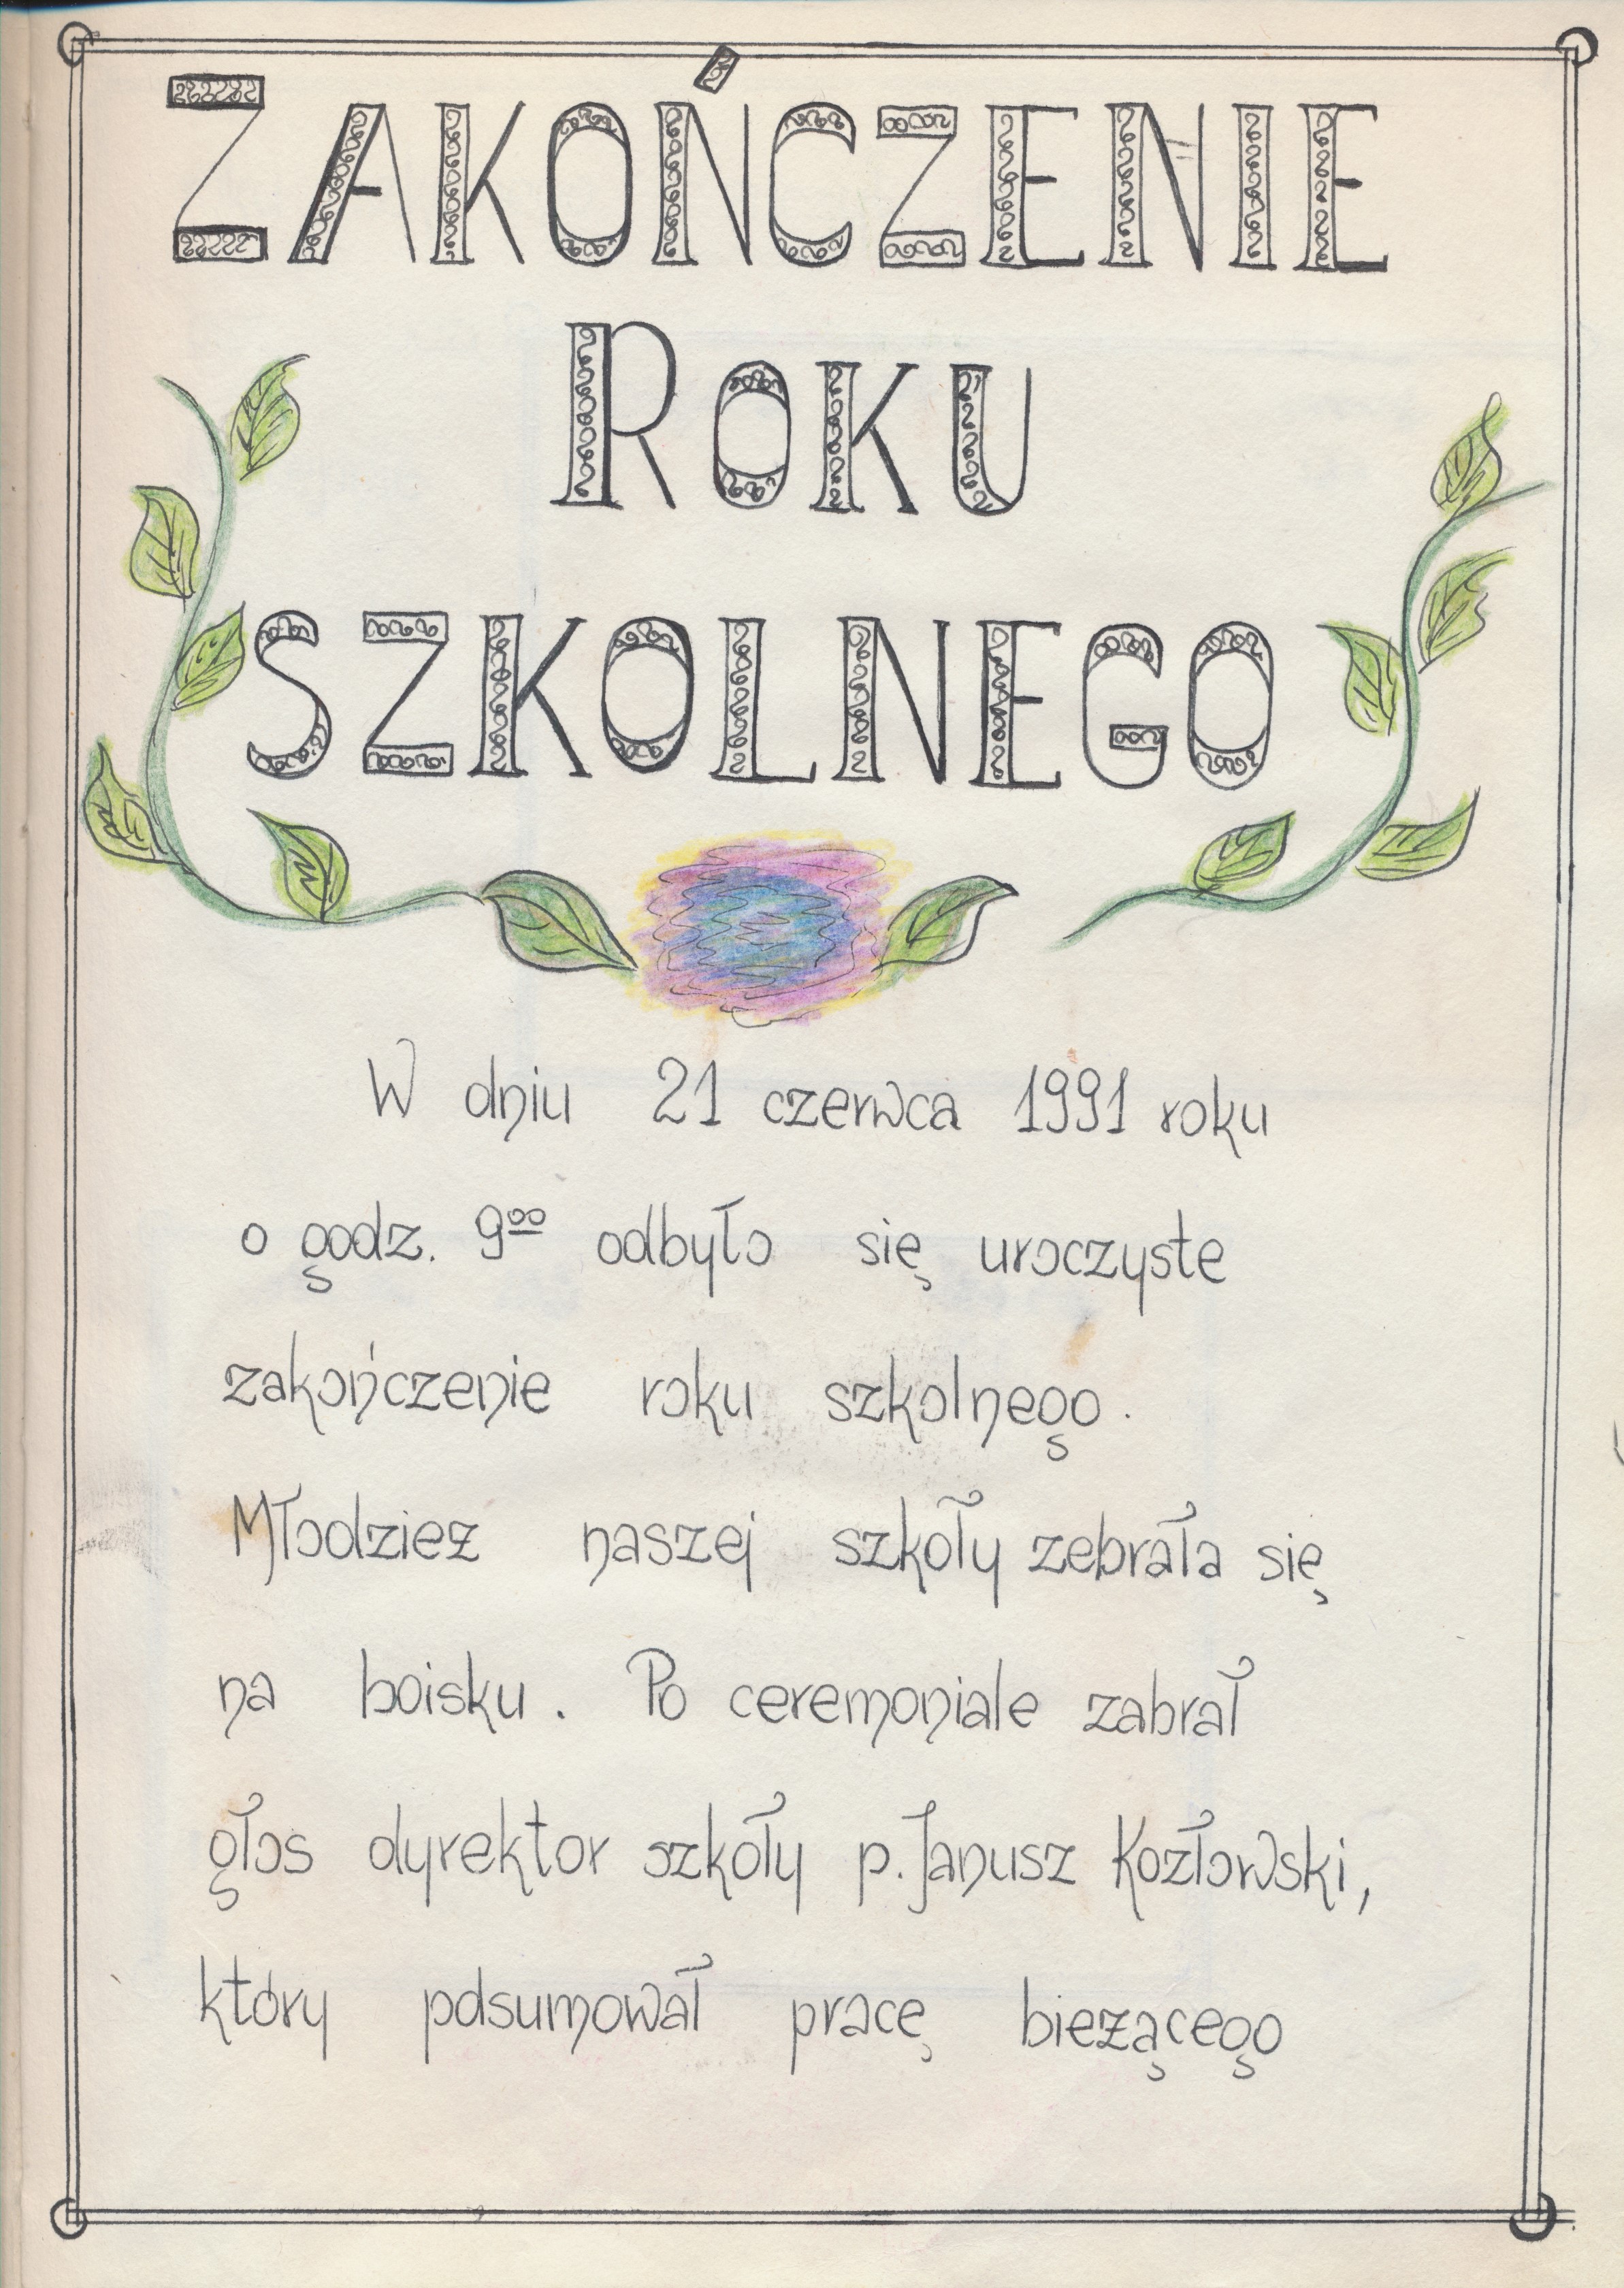 ZAKOŃCZENIE
ROKU
SZKOLNEGO
W dniu 21 czerwca 1991 roku
o godz. 9⁰⁰ odbyło się uroczyste
zakończenie roku szkolnego.
Młodzież naszej szkoły zebrała się
na boisku. Po ceremoniale zabrał
głos dyrektor szkoły p. Janusz Kozłowski,
który pdsumował pracę bieżącego